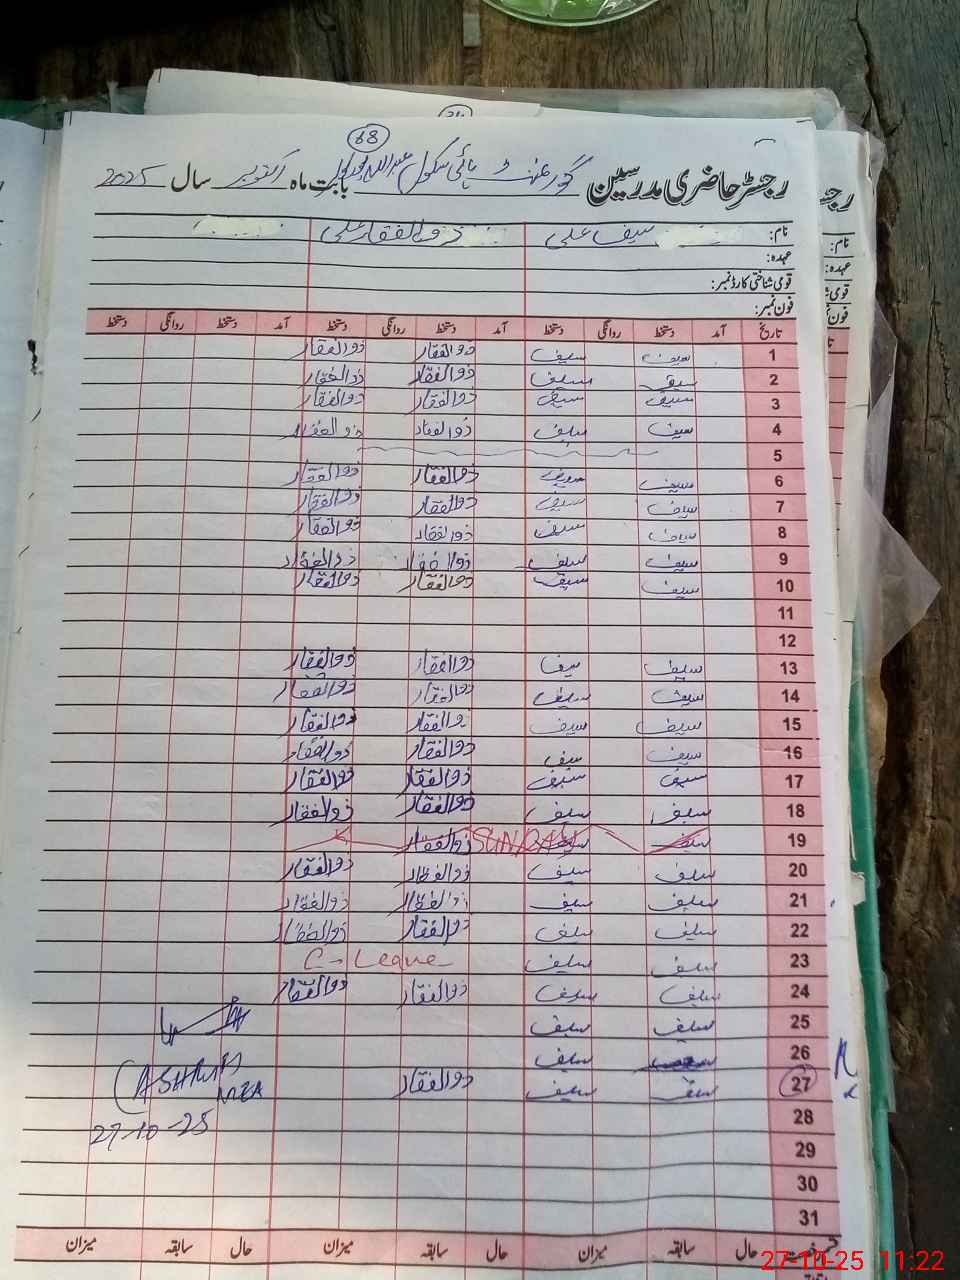 68
رجسٹر حاضری مدرسین گورنمنٹ ہائی سکول عبداللہ بابت ماہ اکتوبر سال 2025
نام: سیف علی ذوالفقار علی
عہدہ:
قومی شناختی کارڈ نمبر:
فون نمبر:
تاریخ آمد دستخط روانگی دستخط آمد دستخط روانگی دستخط آمد دستخط روانگی دستخط
1 سیف سیف ذوالفقار ذوالفقار
2 سیف سیف ذوالفقار ذوالفقار
3 سیف سیف ذوالفقار ذوالفقار
4 سیف سیف ذوالفقار ذوالفقار
5
6 سیف سیف ذوالفقار ذوالفقار
7 سیف سیف ذوالفقار ذوالفقار
8 سیف سیف ذوالفقار ذوالفقار
9 سیف سیف ذوالفقار ذوالفقار
10 سیف سیف ذوالفقار ذوالفقار
11
12
13 سیف سیف ذوالفقار ذوالفقار
14 سیف سیف ذوالفقار ذوالفقار
15 سیف سیف ذوالفقار ذوالفقار
16 سیف سیف ذوالفقار ذوالفقار
17 سیف سیف ذوالفقار ذوالفقار
18 سیف سیف ذوالفقار ذوالفقار
19 سیف سیف SUNDAY ذوالفقار
20 سیف سیف ذوالفقار ذوالفقار
21 سیف سیف ذوالفقار ذوالفقار
22 سیف سیف ذوالفقار ذوالفقار
23 سیف سیف C-Leave
24 سیف سیف ذوالفقار ذوالفقار
25 سیف سیف
26 سیف
27 سیف سیف ذوالفقار
28
29
30
31
MEA
27-10-25
حال سابقہ میزان حال سابقہ میزان حال سابقہ میزان
27-10-25 11:22